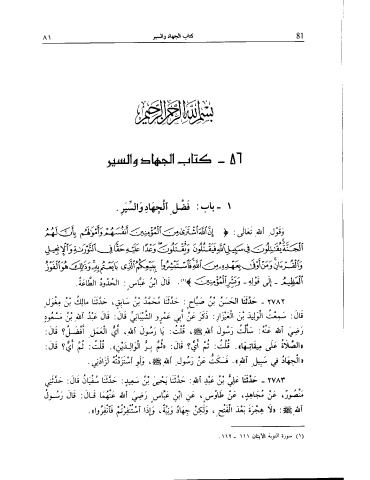 81 كتاب الجهاد والسير ٨١
بسم الله الرحمن الرحيم
٥٦ - كتاب الجهاد والسير
١ - باب: فَضْلُ الْجِهَادِ وَالسِّيَرِ.
وَقَوْلِ اللهِ تَعَالَى: ﴿إِنَّ اللَّهَ اشْتَرَىٰ مِنَ الْمُؤْمِنِينَ أَنفُسَهُمْ وَأَمْوَالَهُم بِأَنَّ لَهُمُ
الْجَنَّةَ يُقَاتِلُونَ فِي سَبِيلِ اللَّهِ فَيَقْتُلُونَ وَيُقْتَلُونَ وَعْدًا عَلَيْهِ حَقًّا فِي التَّوْرَاةِ وَالْإِنجِيلِ
وَالْقُرْآنِ وَمَنْ أَوْفَىٰ بِعَهْدِهِ مِنَ اللَّهِ فَاسْتَبْشِرُوا بِبَيْعِكُمُ الَّذِي بَايَعْتُم بِهِ وَذَٰلِكَ هُوَ الْفَوْزُ
الْعَظِيمُ - إلى قوله - وَبَشِّرِ الْمُؤْمِنِينَ﴾(١). قَالَ ابْنُ عَبَّاسٍ: الْحُدُودُ الطَّاعَةُ.
٢٧٨٢ - حَدَّثَنَا الْحَسَنُ بْنُ صَبَّاحٍ: حَدَّثَنَا مُحَمَّدُ بْنُ سَابِقٍ، حَدَّثَنَا مَالِكُ بْنُ مِغْوَلٍ
قَالَ: سَمِعْتُ الْوَلِيدَ بْنَ الْعَيْزَارِ: ذَكَرَ عَنْ أَبِي عَمْرٍو الشَّيْبَانِيِّ قَالَ: قَالَ عَبْدُ اللهِ بْنُ مَسْعُودٍ
رَضِيَ اللهُ عَنْهُ: سَأَلْتُ رَسُولَ اللهِ ﷺ، قُلْتُ: يَا رَسُولَ اللهِ، أَيُّ الْعَمَلِ أَفْضَلُ؟ قَالَ:
«الصَّلَاةُ عَلَى مِيقَاتِهَا». قُلْتُ: ثُمَّ أَيٌّ؟ قَالَ: «ثُمَّ بِرُّ الْوَالِدَيْنِ». قُلْتُ: ثُمَّ أَيٌّ؟ قَالَ:
«الْجِهَادُ فِي سَبِيلِ اللهِ». فَسَكَتُّ عَنْ رَسُولِ اللهِ ﷺ، وَلَوِ اسْتَزَدْتُهُ لَزَادَنِي.
٢٧٨٣ - حَدَّثَنَا عَلِيُّ بْنُ عَبْدِ اللهِ: حَدَّثَنَا يَحْيَى بْنُ سَعِيدٍ: حَدَّثَنَا سُفْيَانُ قَالَ: حَدَّثَنِي
مَنْصُورٌ، عَنْ مُجَاهِدٍ، عَنْ طَاوُسٍ، عَنِ ابْنِ عَبَّاسٍ رَضِيَ اللهُ عَنْهُمَا قَالَ: قَالَ رَسُولُ
اللهِ ﷺ: «لَا هِجْرَةَ بَعْدَ الْفَتْحِ، وَلَكِنْ جِهَادٌ وَنِيَّةٌ، وَإِذَا اسْتُنْفِرْتُمْ فَانْفِرُوا».
(١) سورة التوبة الآيتان ١١١ - ١١٢.